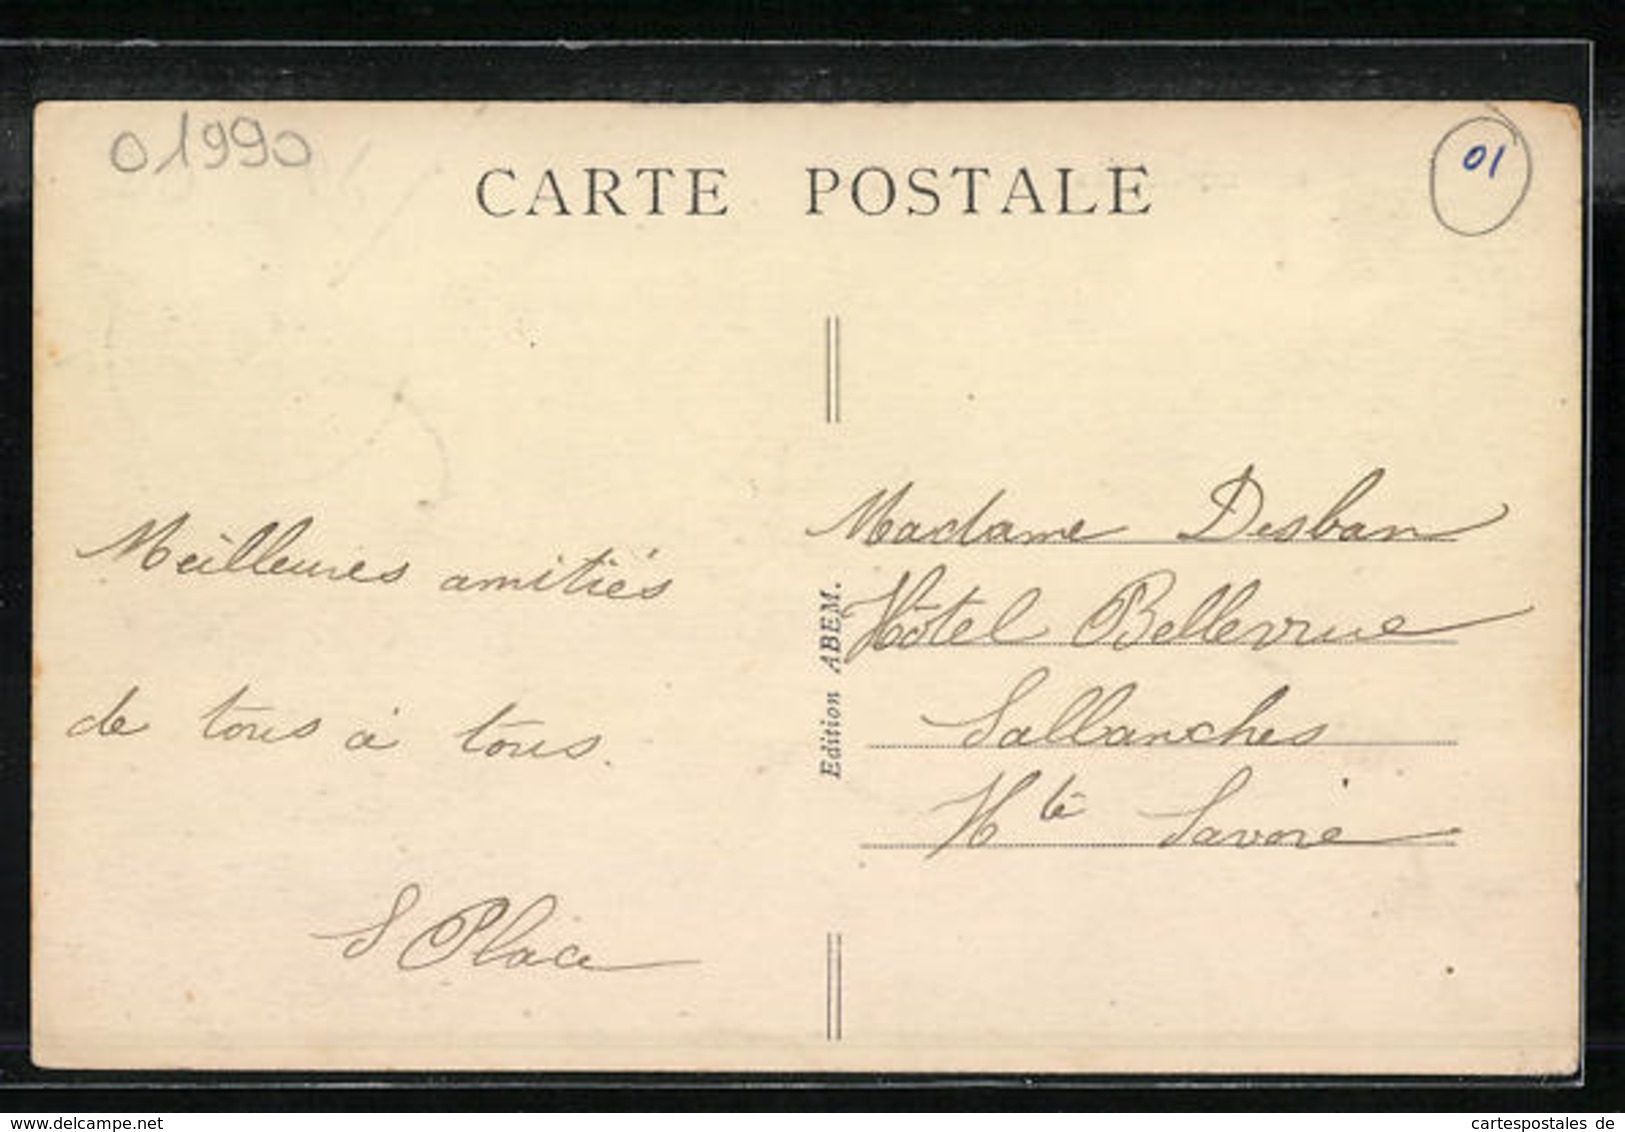 01990
01
CARTE POSTALE
Meilleures amitiés
de tous à tous.
S Place
Edition ABEM.
Madame Desban
Hôtel Bellevue
Sallanches
Hte Savoie
www.delcampe.net
cartespostales de